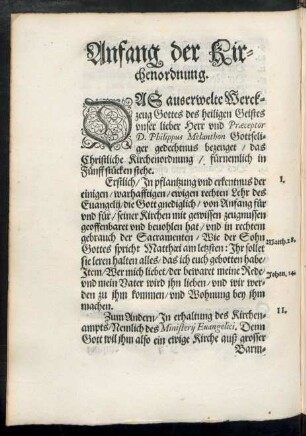 Anfang der Kir-
chenordnung.
DAS auserwelte Werck-
zeug Gottes des heiligen Geistes
vnser lieber Herr vnd Præceptor
D. Philippus Melanthon Gottseli-
ger gedechtnus bezeuget / das
Christliche Kirchenordnung / fürnemlich in
Fünff stücken stehe.
Erstlich / In pflantzung vnd erkentnus der
I.
einigen / warhafftigen / ewigen rechten Lehr des
Euangelij / die Gott gnediglich / von Anfang für
vnd für / seiner Kirchen mit gewissen zeugnussen
geoffenbaret vnd beuohlen hat / vnd in rechtem
gebrauch der Sacramenten / Wie der Sohn
Gottes spricht Matthæi am letzten: Ihr sollet
Matth. 28.
sie leren halten alles / das ich euch gebotten habe /
Item: Wer mich liebet / der bewaret meine Rede /
Johan. 14.
vnd mein Vater wird ihn lieben / vnd wir wer-
den zu ihm kommen / vnd Wohnung bey ihm
machen.
Zum Andern / In erhaltung des Kirchen-
II.
ampts / Nemlich des Ministerij Euangelici, Denn
Gott wil ihm also ein ewige Kirche auß grosser
Barm-